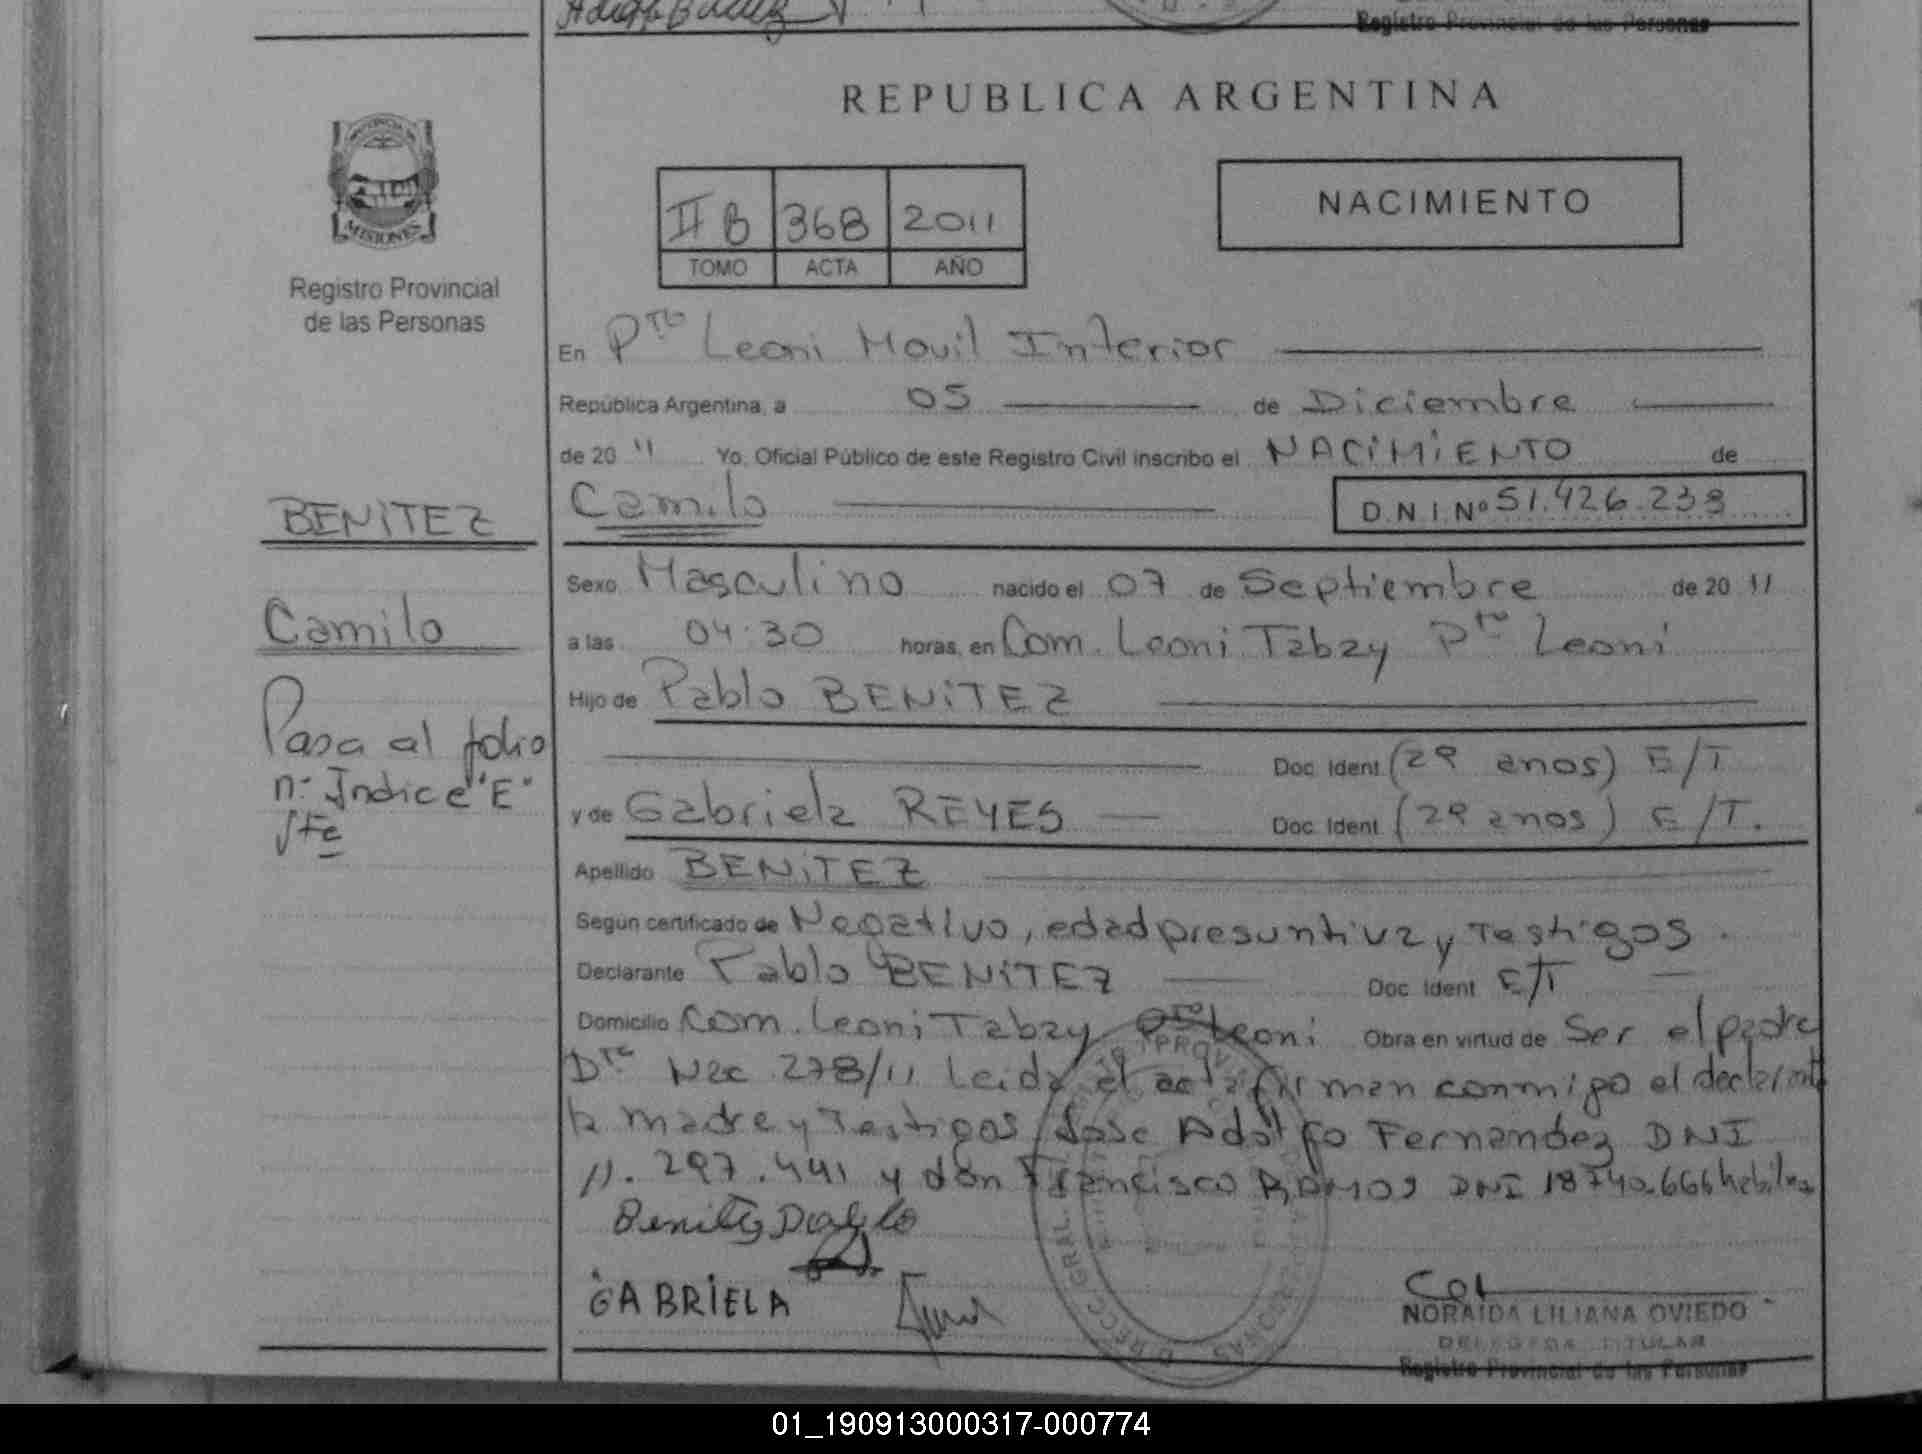 Registro Provincial de las Personas
REPUBLICA ARGENTINA
MISIONES
Registro Provincial
de las Personas
II B 368 2011
TOMO ACTA AÑO
NACIMIENTO
En Pto Leoni Movil Interior
República Argentina, a 05 de Diciembre
de 20 11 Yo, Oficial Público de este Registro Civil inscribo el NACIMIENTO de
BENITEZ
Camilo
D.N.I.Nº 51.426.238
Sexo Masculino nacido el 07 de Septiembre de 20 11
Camilo
a las 04:30 horas, en Com. Leoni Tabay Pto Leoni
Hijo de Pablo BENITEZ
Pasa al folio
n: Indice "E"
Ste
Doc. Ident. (29 anos) E/T
y de Gabriela REYES Doc. Ident. (29 anos) E/T.
Apellido BENITEZ
Según certificado de Negativo, edad presuntiva y Testigos.
Declarante Pablo BENITEZ Doc. Ident E/T
Domicilio Com. Leoni Tabay Pto Leoni Obra en virtud de Ser el padre
Dto Nac 278/11 Leida el acta firman conmigo el declarante
la madre y Testigos Jose Adolfo Fernandez DNI
11.297.441 y don Francisco RAMOS DNI 18740.666 habiles
Benitez Pablo
GABRIELA
NORAIDA LILIANA OVIEDO
DELEGADA TITULAR
Registro Provincial de las Personas
01_190913000317-000774